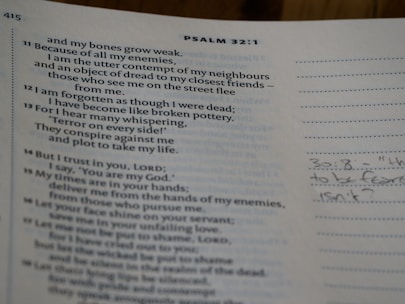 415
PSALM 32:1
and my bones grow weak.
11 Because of all my enemies,
I am the utter contempt of my neighbours
and an object of dread to my closest friends –
those who see me on the street flee
from me.
12 I am forgotten as though I were dead;
I have become like broken pottery.
13 For I hear many whispering,
'Terror on every side!'
They conspire against me
and plot to take my life.
14 But I trust in you, LORD;
I say, 'You are my God.'
15 My times are in your hands;
deliver me from the hands of my enemies,
from those who pursue me.
16 Let your face shine on your servant;
save me in your unfailing love.
17 Let me not be put to shame, LORD,
for I have cried out to you;
but let the wicked be put to shame
and be silent in the realm of the dead.
18 Let their lying lips be silenced,
for with pride and contempt
they speak arrogantly against the
30:8 - "th
to be fear
isn't?